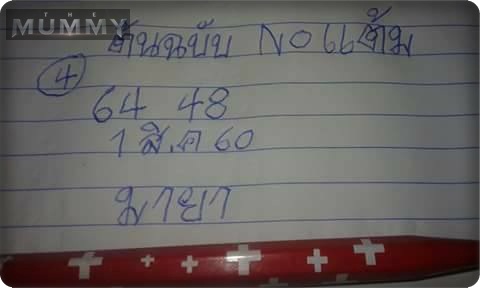 THE
MUMMY
ต้นฉบับ NO แต้ม
4
64 48
1 สิ.ค 60
มายา